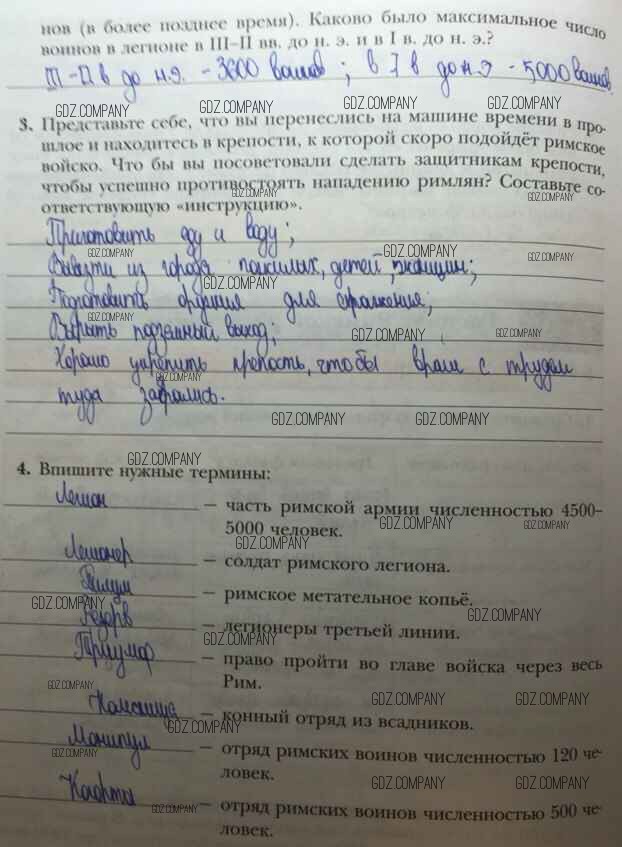 нов (в более позднее время). Каково было максимальное число
воинов в легионе в III–II вв. до н. э. и в I в. до н. э.?
III – II в до н.э. - 3600 воинов ; в I в до н.э - 5000 воинов
GDZ.COMPANY GDZ.COMPANY GDZ.COMPANY GDZ.COMPANY
3. Представьте себе, что вы перенеслись на машине времени в про-
шлое и находитесь в крепости, к которой скоро подойдёт римское
войско. Что бы вы посоветовали сделать защитникам крепости,
чтобы успешно противостоять нападению римлян? Составьте со-
GDZ.COMPANY GDZ.COMPANY
ответствующую «инструкцию».
Приготовить еду и воду;
GDZ.COMPANY GDZ.COMPANY GDZ.COMPANY
Вывезти из города пожилых, детей, женщин;
GDZ.COMPANY
Подготовить оружия для сражения;
GDZ.COMPANY
Вырыть подземный выход;
GDZ.COMPANY GDZ.COMPANY
Хорошо укрепить крепость, чтобы враги с трудом
GDZ.COMPANY
туда забрались.
GDZ.COMPANY GDZ.COMPANY
GDZ.COMPANY
4. Впишите нужные термины:
Легион — часть римской армии численностью 4500–
5000 человек.
GDZ.COMPANY GDZ.COMPANY
GDZ.COMPANY
Легионер — солдат римского легиона.
Пилум — римское метательное копьё.
GDZ.COMPANY GDZ.COMPANY
Резерв — легионеры третьей линии.
GDZ.COMPANY
Триумф — право пройти во главе войска через весь
Рим.
GDZ.COMPANY GDZ.COMPANY GDZ.COMPANY
— конный отряд из всадников.
GDZ.COMPANY
Манипул — отряд римских воинов численностью 120 че-
GDZ.COMPANY
ловек.
GDZ.COMPANY GDZ.COMPANY
Когорта — отряд римских воинов численностью 500 че-
GDZ.COMPANY
ловек.